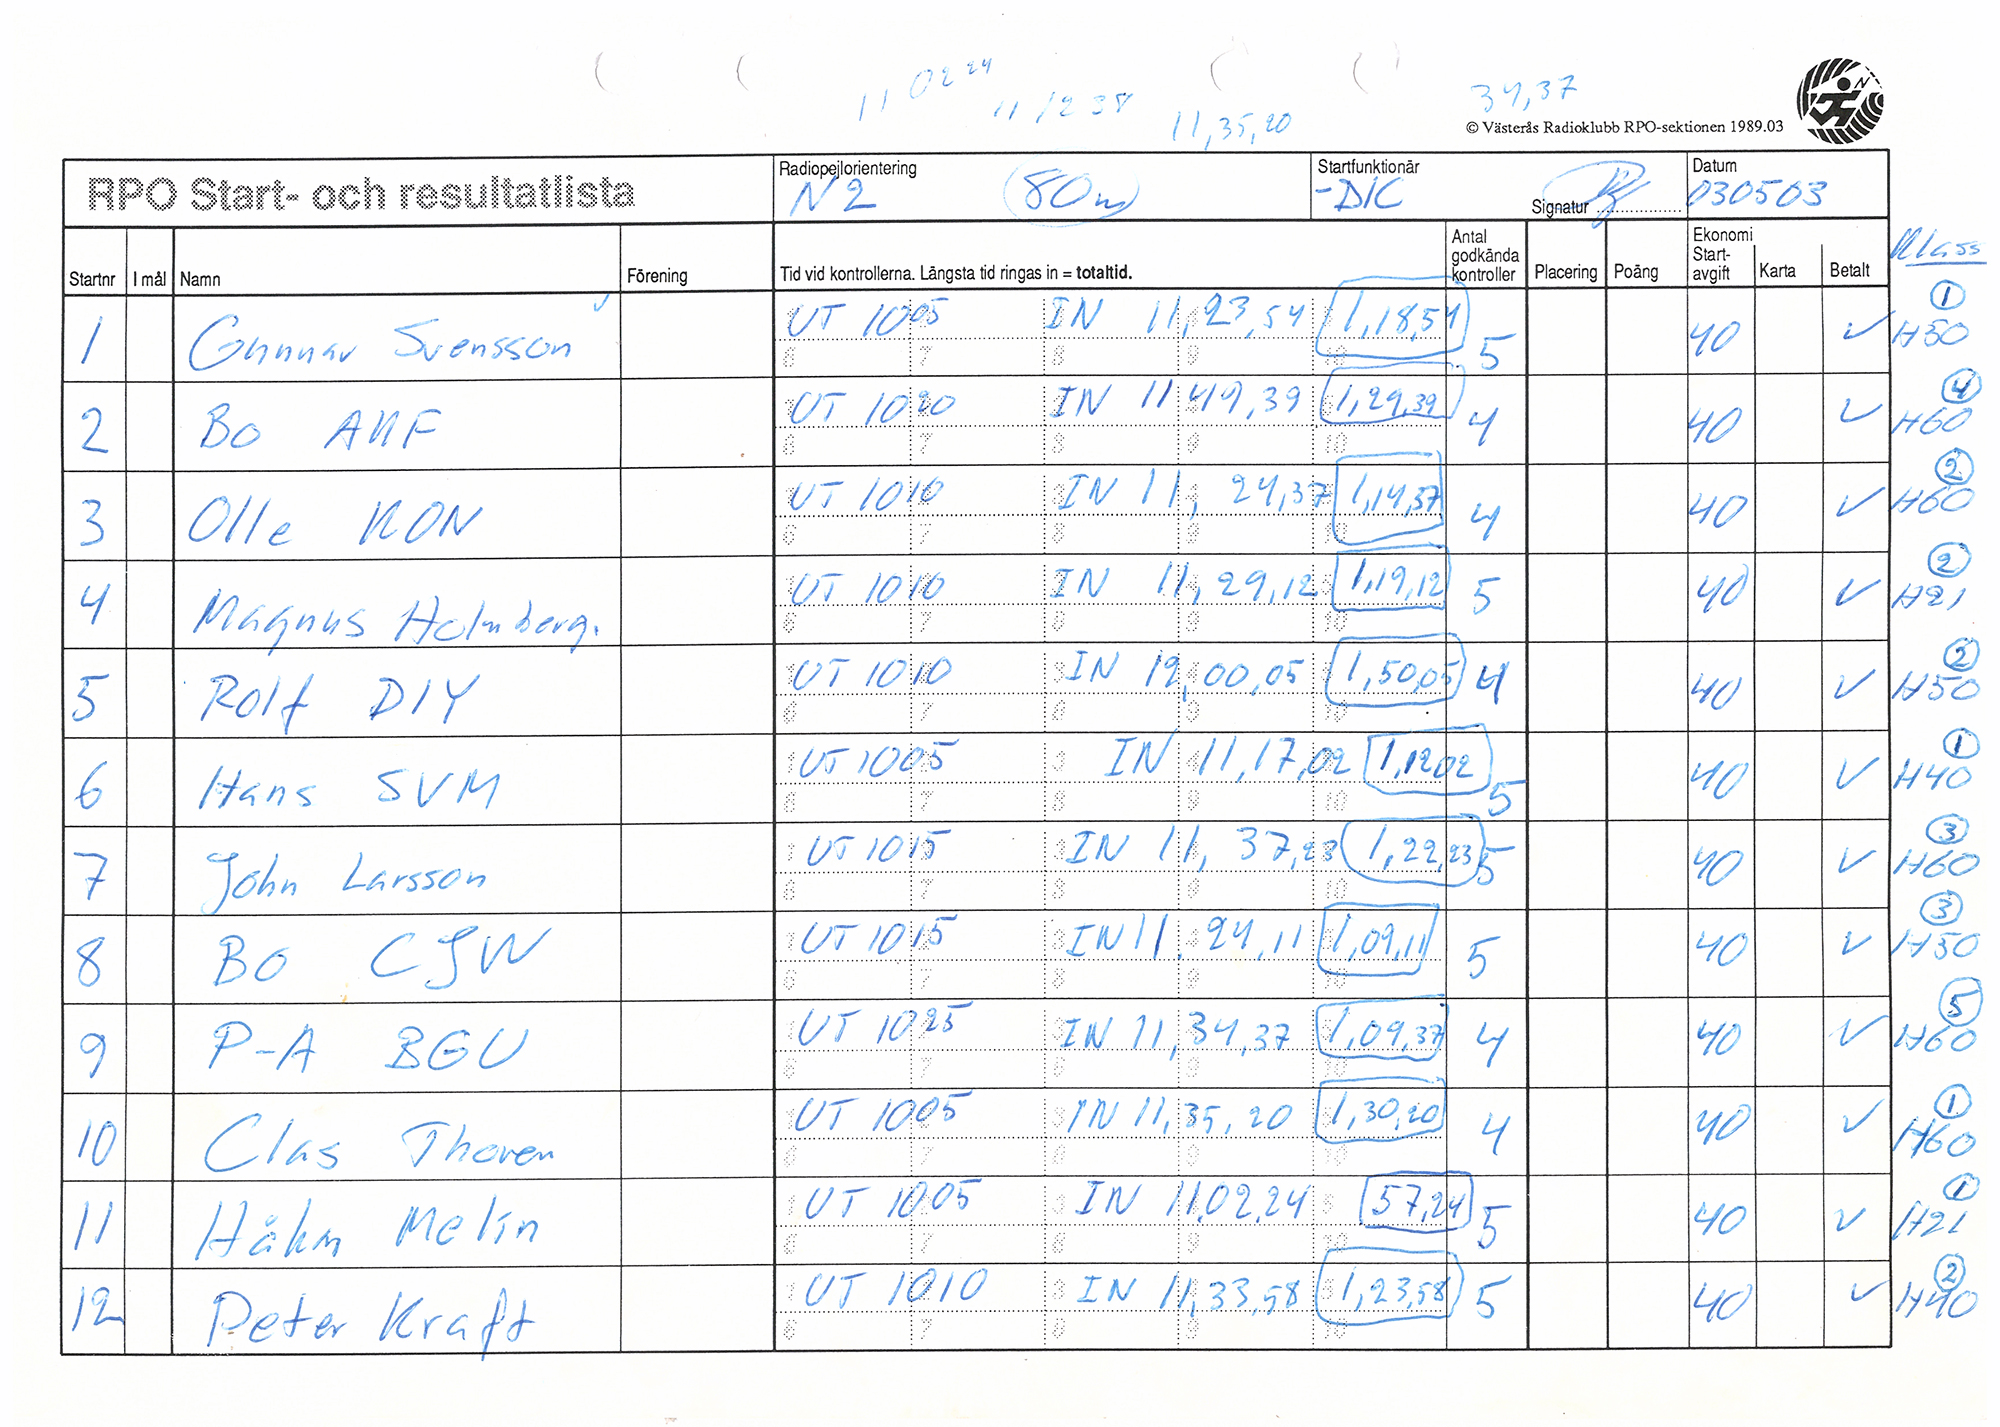 11 02 24
11 12 38
11,35,20
34,37
© Västerås Radioklubb RPO-sektionen 1989.03
RPO Start- och resultatlista
Radiopejlorientering N2 80m
Startfunktionär -DIC
Signatur
Datum 030503
Klass
Startnr I mål Namn Förening Tid vid kontrollerna. Längsta tid ringas in = totaltid. Antal godkända kontroller Placering Poäng Ekonomi Start-avgift Karta Betalt
1 Gunnar Svensson UT 1005 IN 11,23,54 1,18,54 5 40 ✓ H50 1
2 Bo ANF UT 1020 IN 11 49,39 1,29,39 4 40 ✓ H60 4
3 Olle KON UT 1010 IN 11, 24,37 1,14,37 4 40 ✓ H60 2
4 Magnus Holmberg. UT 1010 IN 11,29,12 1,19,12 5 40 ✓ H21 2
5 Rolf DIY UT 1010 IN 12,00,05 1,50,05 4 40 ✓ H50 2
6 Hans SVM UT 1005 IN 11,17,02 1,12,02 5 40 ✓ H40 1
7 John Larsson UT 1015 IN 11, 37,23 1,22,23 5 40 ✓ H60 3
8 Bo CJW UT 1015 IN 11, 24,11 1,09,11 5 40 ✓ H50 3
9 P-A BGU UT 1025 IN 11,34,37 1,09,37 4 40 ✓ H60 5
10 Clas Thoren UT 1005 IN 11,35,20 1,30,20 4 40 ✓ H60 1
11 Håkm Melin UT 1005 IN 11,02,24 57,24 5 40 ✓ H21 1
12 Peter Kraft UT 1010 IN 11,33,58 1,23,58 5 40 ✓ H40 2